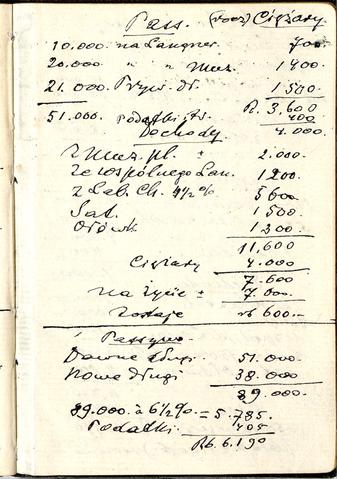 Pass. (rocz) Ciężary
10.000. na Langner 700.
20.000 " " Muz. 1400.
21.000. Pryw. dł. 1500.
51.000. R. 3,600
podatki 400
Dochody 4.000.
z Muz. pl. 2.000.
ze wspólnego Lan. 1200.
z Lab. Ch. 4½% 5600
Sat. 1500.
1200.
11,600
Ciężary 4.000.
7.600
na życie 7.000.
zostaje rb 600.—
Passywa
Dawne długi 51.000.
Nowe długi 38.000.
89.000.
89.000 à 6½% = 5.785.
Podatki. 405
Rb. 6.190